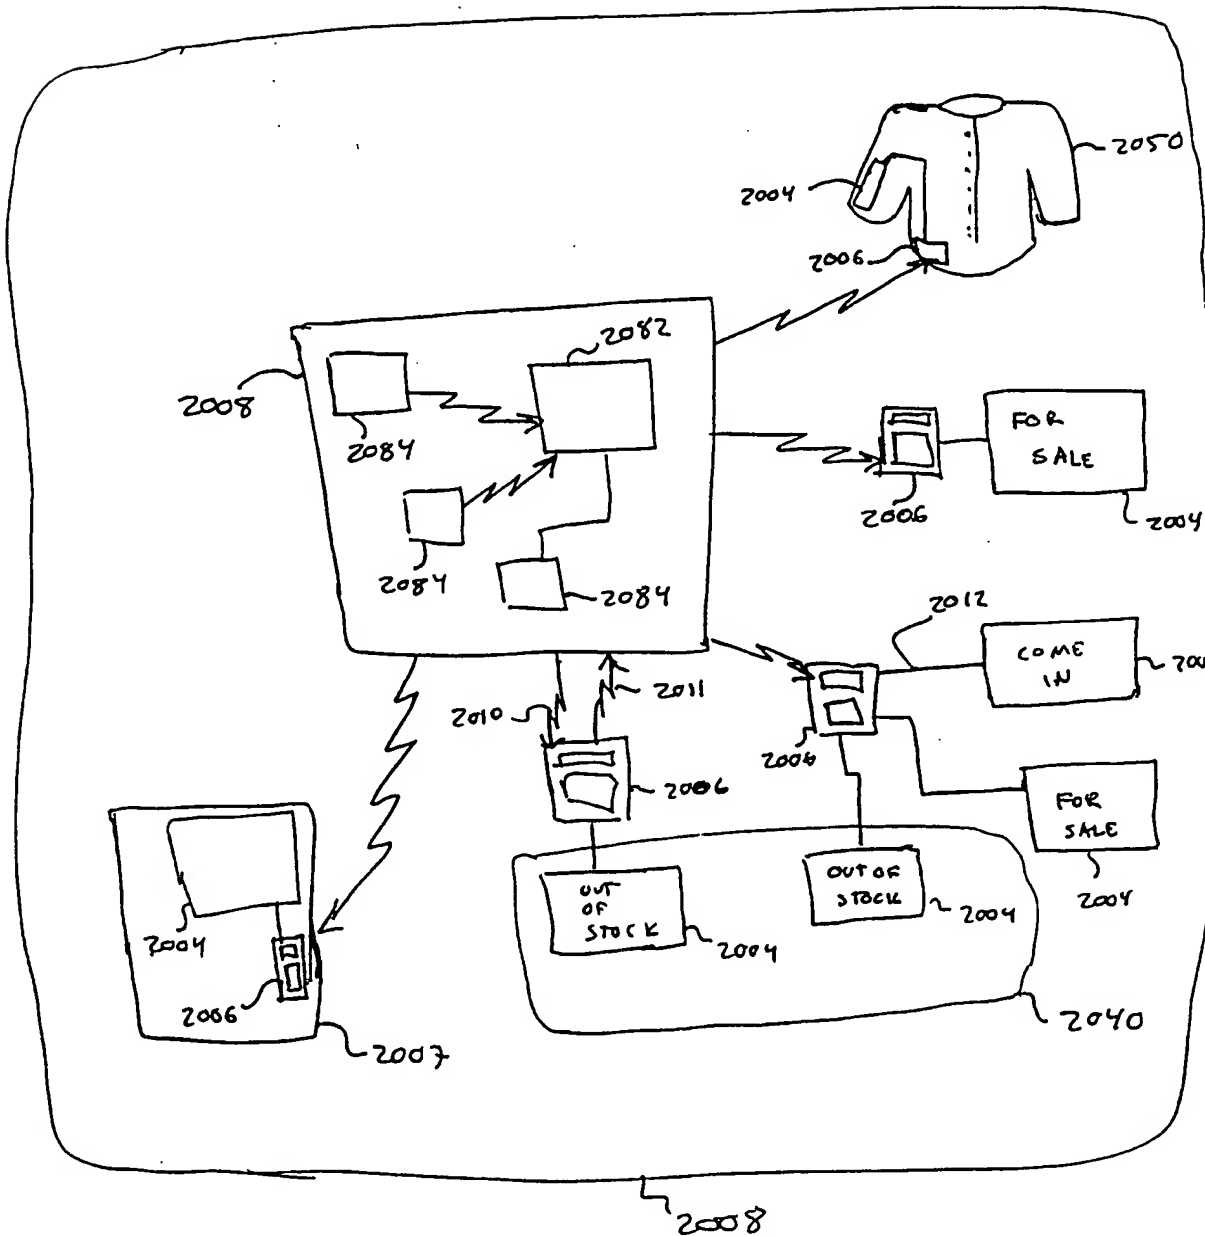 2050
2004
2006
2082
2008
2084
FOR
SALE
2006
2004
2084
2084
2012
COME
IN
2011
2010
2006
2006
FOR
SALE
OUT OF
STOCK
2004
2004
OUT
OF
STOCK
2004
2004
2006
2040
2007
2008